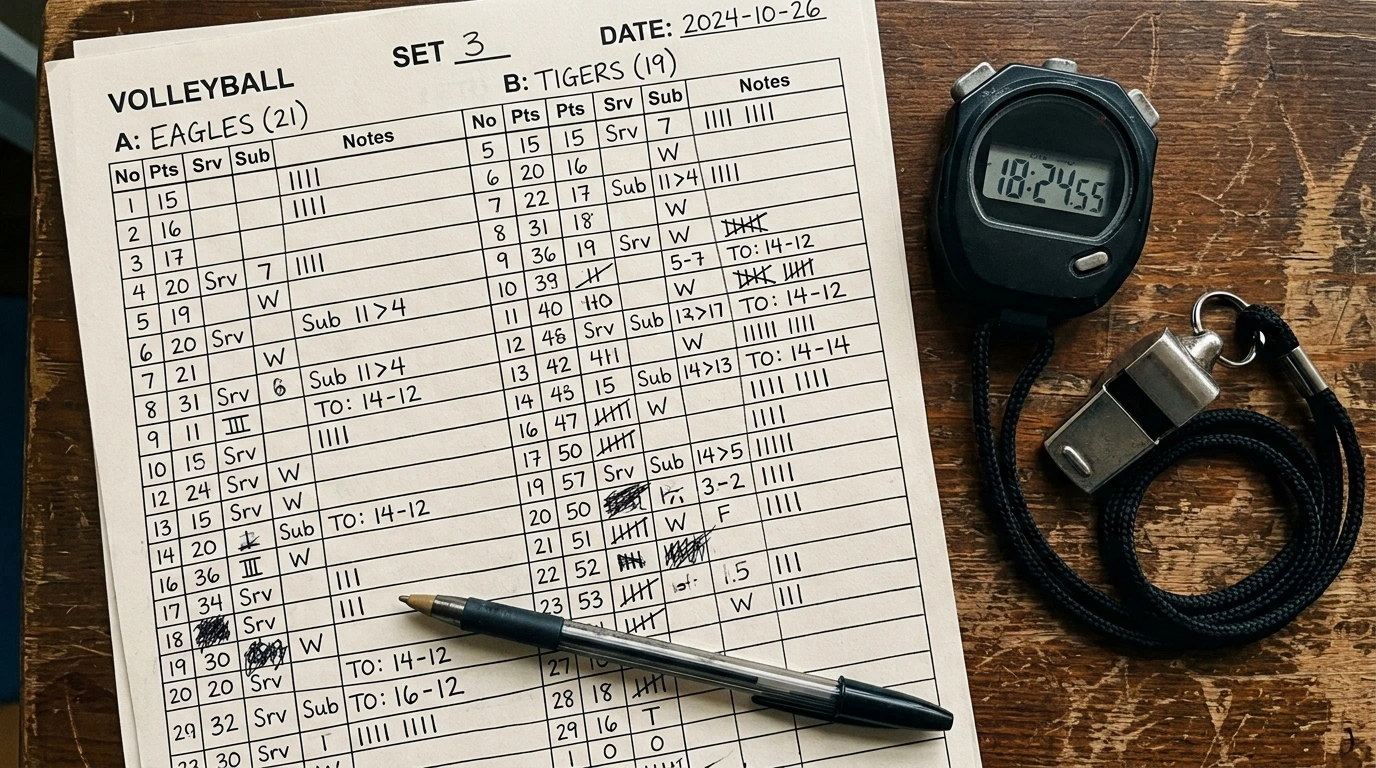 SET 3
DATE: 2024-10-26
VOLLEYBALL
A: EAGLES (21)
No Pts Srv Sub Notes
1 15 IIII
2 16 IIII
3 17
4 20 Srv 7 IIII
5 19 W
6 20 Srv Sub 11>4
7 21 W
8 31 Srv 6 Sub 11>4
9 11 III TO: 14-12
10 15 Srv IIII
12 24 Srv W
13 15 Srv W
14 20 Sub TO: 14-12
16 36 III W
17 34 Srv III
18 Srv III
19 30 W
20 20 Srv TO: 14-12
29 32 Srv Sub TO: 16-12
30 Srv 1 IIII IIII
B: TIGERS (19)
No Pts Pts Srv Sub Notes
5 15 15 Srv 7 IIII IIII
6 20 16 W
7 22 17 Sub 11>4 IIII
8 31 18 W
9 36 19 Srv W
10 39 5-7 TO: 14-12
11 40 W
12 48 Srv Sub 13>17 TO: 14-12
13 42 411 W IIIII IIII
14 43 15 Sub 14>13 TO: 14-14
16 47 W IIII IIII
17 50 IIII
19 57 Srv Sub 14>5 IIIII
20 50 3.-2 IIII
21 51 W F IIII
22 52
23 53 1.5 III
W III
27
28 18
29 16 T
1 0 0
18:24.55